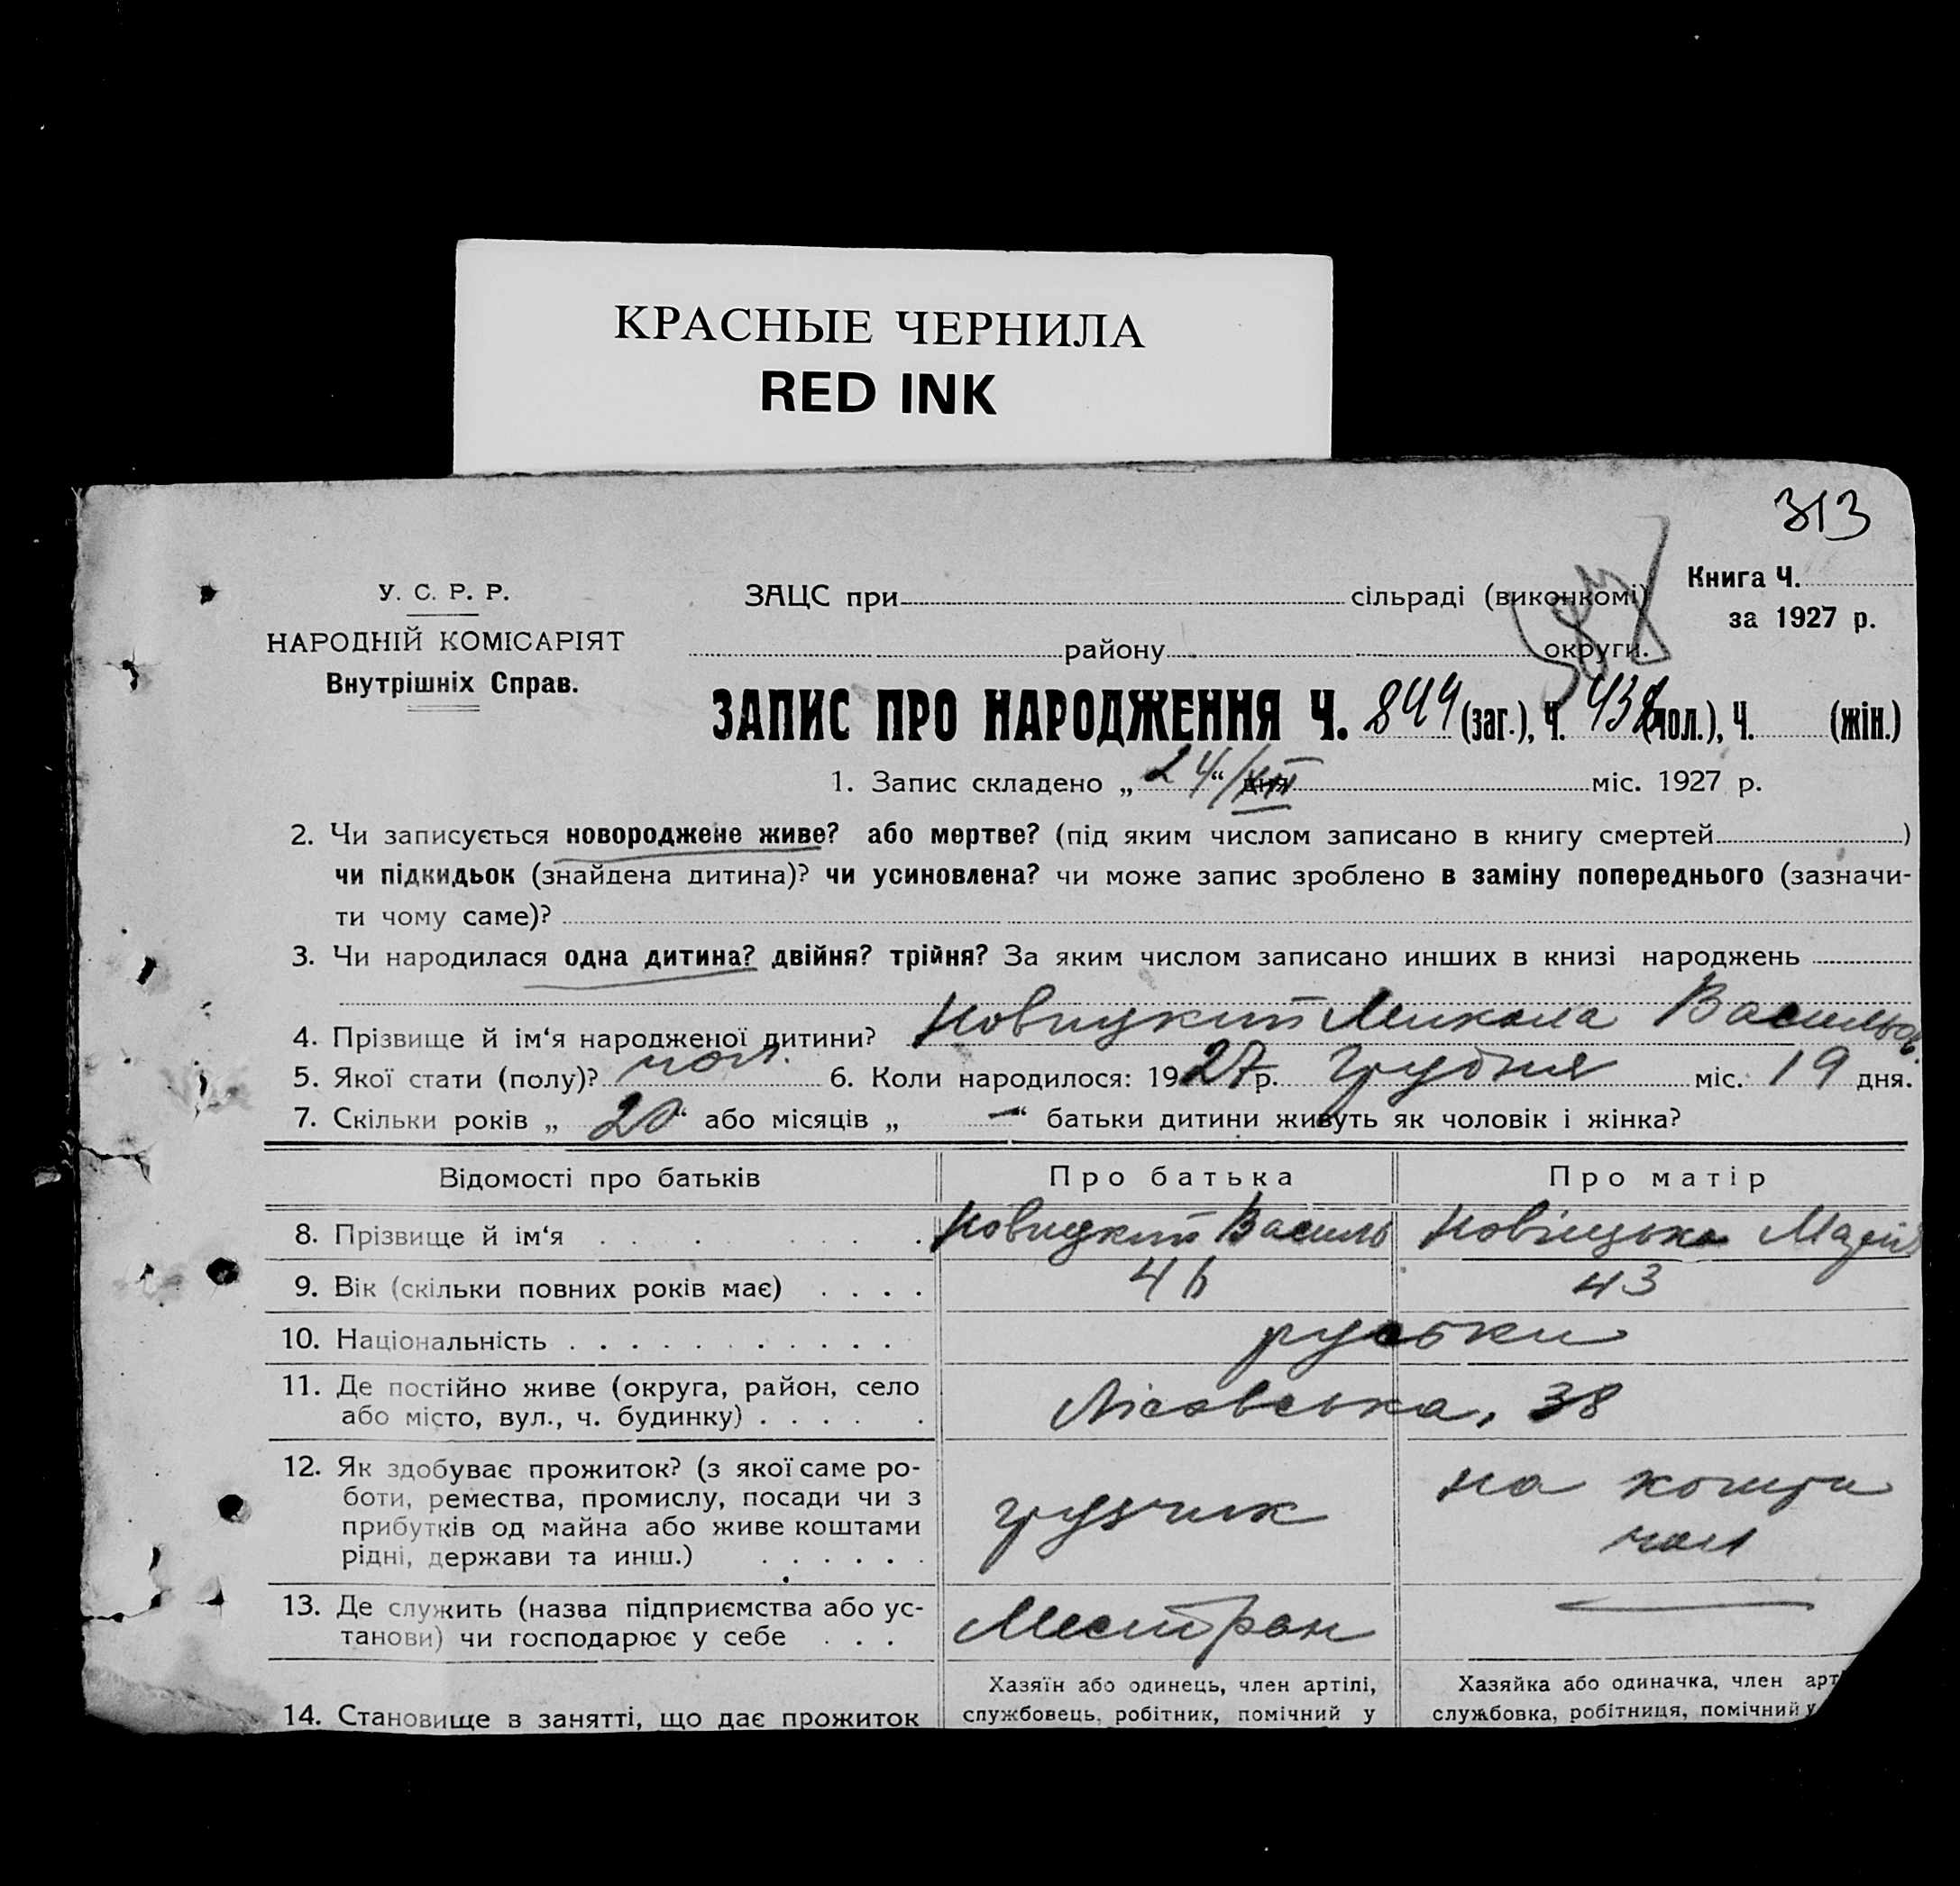 КРАСНЫЕ ЧЕРНИЛА
RED INK
313
У. С. Р. Р.
НАРОДНІЙ КОМІСАРІЯТ
Внутрішніх Справ.
ЗАЦС при сільраді (виконкомі)
району округи.
Книга Ч.
за 1927 р.
ЗАПИС ПРО НАРОДЖЕННЯ Ч. 849 (заг.), Ч. 438 (чол.), Ч. (жін.)
1. Запис складено „ 24 “ /XII дня міс. 1927 р.
2. Чи записується новороджене живе? або мертве? (під яким числом записано в книгу смертей )
чи підкидьок (знайдена дитина)? чи усиновлена? чи може запис зроблено в заміну попереднього (зазначи-
ти чому саме)?
3. Чи народилася одна дитина? двійня? трійня? За яким числом записано инших в книзі народжень
4. Прізвище й ім‘я народженої дитини? Новицкий Микола Васильов.
5. Якої стати (полу)? чол. 6. Коли народилося: 1927 р. грудня міс. 19 дня.
7. Скільки років „ 20 “ або місяців „ — “ батьки дитини живуть як чоловік і жінка?
Відомості про батьків Про батька Про матір
8. Прізвище й ім‘я Новицкий Василь Новіцька Марія
9. Вік (скільки повних років має) 46 43
10. Національність руськи
11. Де постійно живе (округа, район, село
або місто, вул., ч. будинку) Лісовська, 38
12. Як здобуває прожиток? (з якої саме ро-
боти, ремества, промислу, посади чи з
прибутків од майна або живе коштами
рідні, держави та инш.) грузчик на кошти
чол
13. Де служить (назва підприємства або ус-
танови) чи господарює у себе Местран —
14. Становище в занятті, що дає прожиток
Хазяїн або одинець, член артілі,
службовець, робітник, помічний у
Хазяйка або одиначка, член арт
службовка, робітниця, помічний у